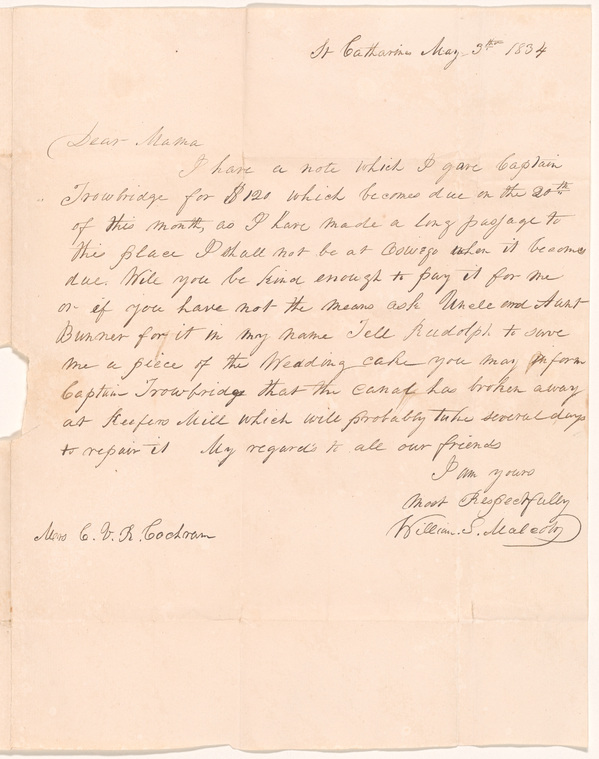 St Catharines May 3th 1834
Dear Mama
I have a note which I gave Captain
Trowbridge for $120 which becomes due on the 20th
of this month, as I have made a long passage to
this place I shall not be at Oswego when it become
due. Will you be kind enough to pay it for me
or if you have not the means ask Uncle and Aunt
Bunner for it in my name Tell Rudolph to save
me a piece of the Wedding cake you may inform
Captain Trowbridge that the canal has broken away
at Keefers Mill which will probably take several days
to repair it My regards to all our friends
I am yours
most Respectfully
William. S. Malcolm
Mrs C. V. R. Cochran